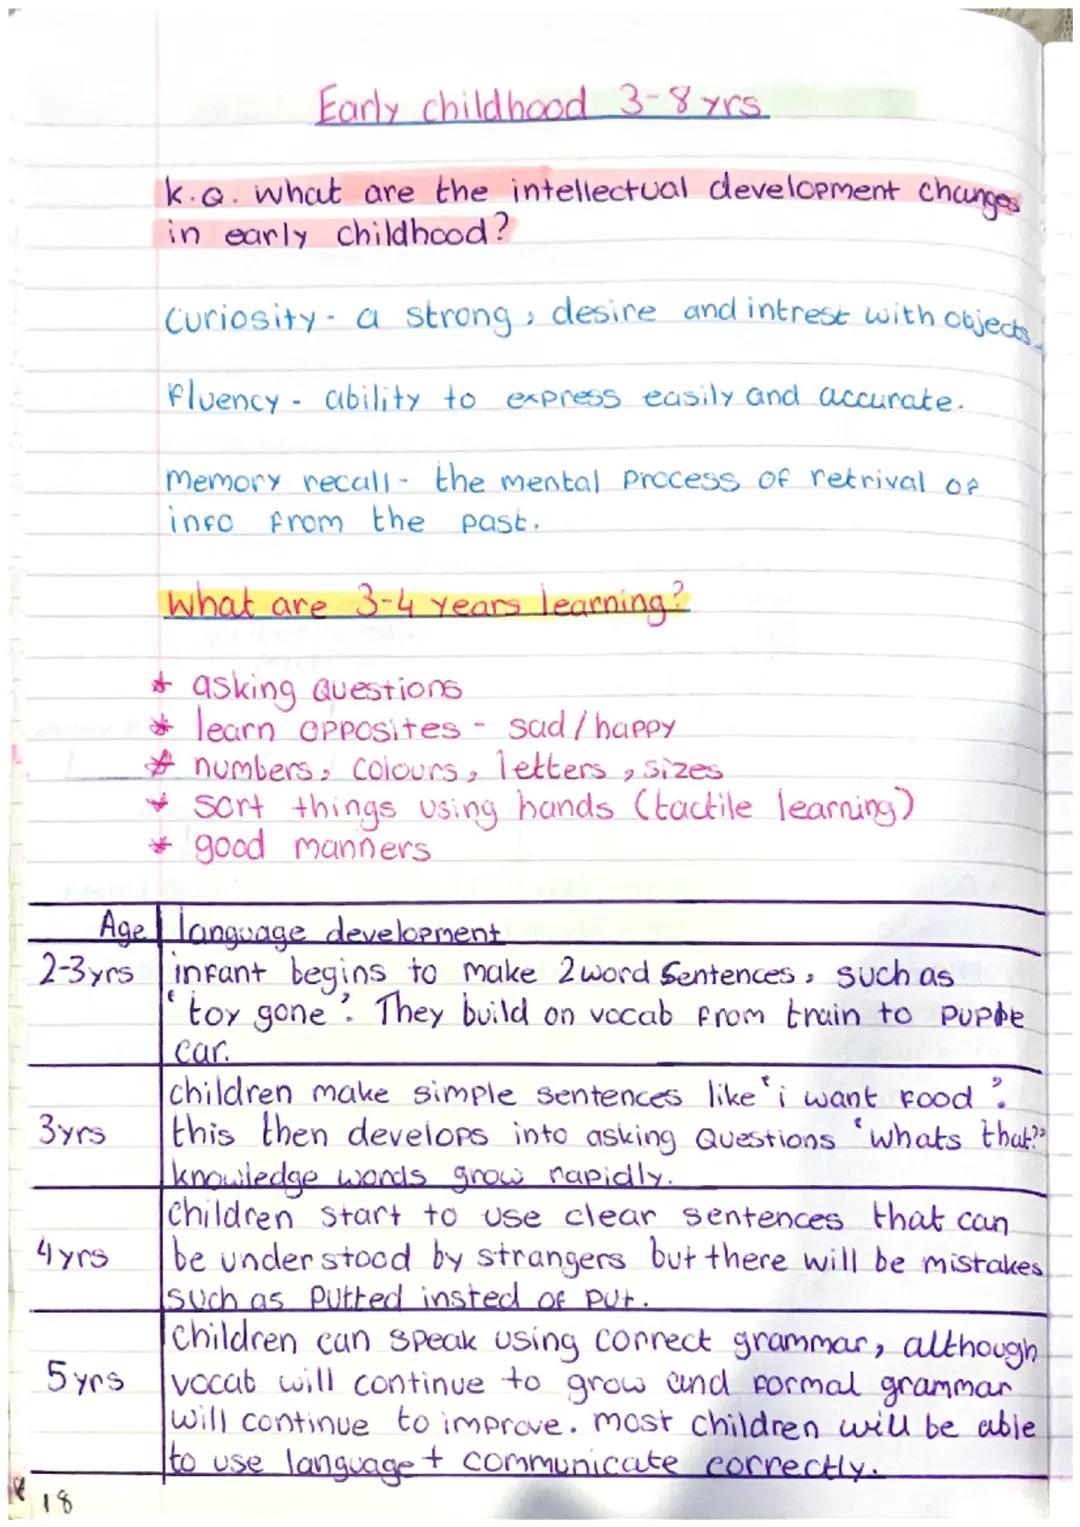 Early childhood 3-8 yrs
K.Q. What are the intellectual development changes
in early childhood?
Curiosity - a strong, desire and intrest with objects.
Fluency - ability to express easily and accurate.
memory recall - the mental process of retrival of
info from the past.
What are 3-4 years learning?
* asking Questions
* learn opposites - sad/happy
* numbers, colours, letters, sizes
* sort things using hands (tactile learning)
* good manners
Age language development
2-3yrs infant begins to make 2 word sentences, such as
'toy gone'. They build on vocab from train to
car.
children make simple sentences like 'i want food'.
3yrs this then develops into asking Questions 'whats that?'
knowledge words grow rapidly.
Children start to use clear sentences that can
4yrs be understood by strangers but there will be mistakes
such as putted insted of put.
Children can speak using correct grammar, although
5yrs vocab will continue to grow and formal grammar
will continue to improve. most children will be able
to use language + communicate correctly.
18